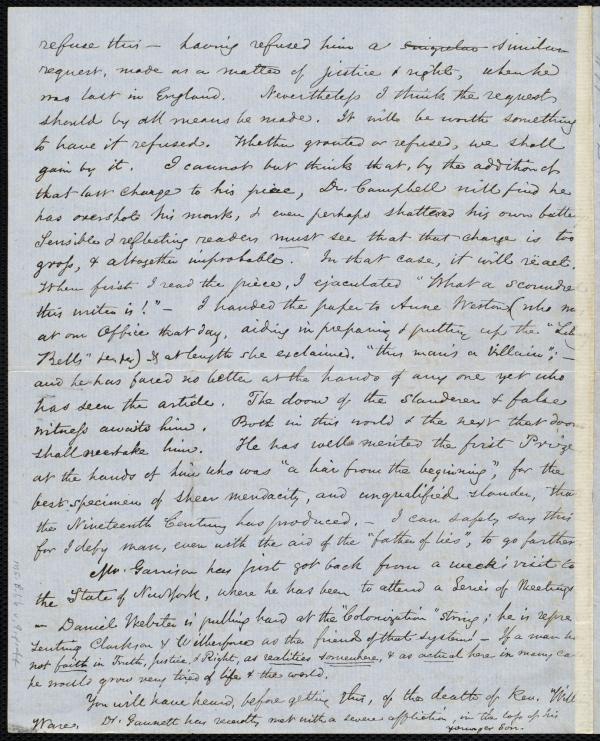 refuse this — having refused him a similar
request, made as a matter of justice & right, when he
was last in England. Nevertheless I think the request
should by all means be made. It will be worth something
to have it refused. Whether granted or refused, we shall
gain by it. I cannot but think that, by the addition of
that last charge to his piece, Dr. Campbell will find he
has overshot his mark, & even perhaps shattered his own
Sensible & reflecting readers must see that that charge is too
gross, & altogether improbable. In that case, it will react.
When first I read the piece, I ejaculated "What a scoundrel
this writer is!" — I handed the paper to Anne Weston (who
at our Office that day, aiding in preparing & putting up the
Bells" &c.) & at length she exclaimed, "this man's a Villain"; —
and he has fared no better at the hands of any one yet who
has seen the article. The doom of the Slanderer & false
witness awaits him. Both in this world & the next that doom
shall overtake him. He has well merited the first Prize
at the hands of him who was "a liar from the beginning", for the
best specimen of sheer mendacity, and unqualified slander, that
the Nineteenth Century has produced. — I can safely say this
for I defy man, even with the aid of the "father of lies", to go farther.
Mr. Garrison has just got back from a week's visit to
the State of New York, where he has been to attend a Series of Meetings
— Daniel Webster is pulling hard at the "Colonization" string; he is repre
senting Clarkson & Wilberforce as the friends of that system — If a man
not faith in Truth, Justice, & Right, as realities somewhere, & as actual here in many
he would grow very tired of life & the world.
You will have heard, before getting this, of the death of Rev. Will
Ware. Dr. Gannett has recently met with a severe affliction, in the loss of his
younger son.